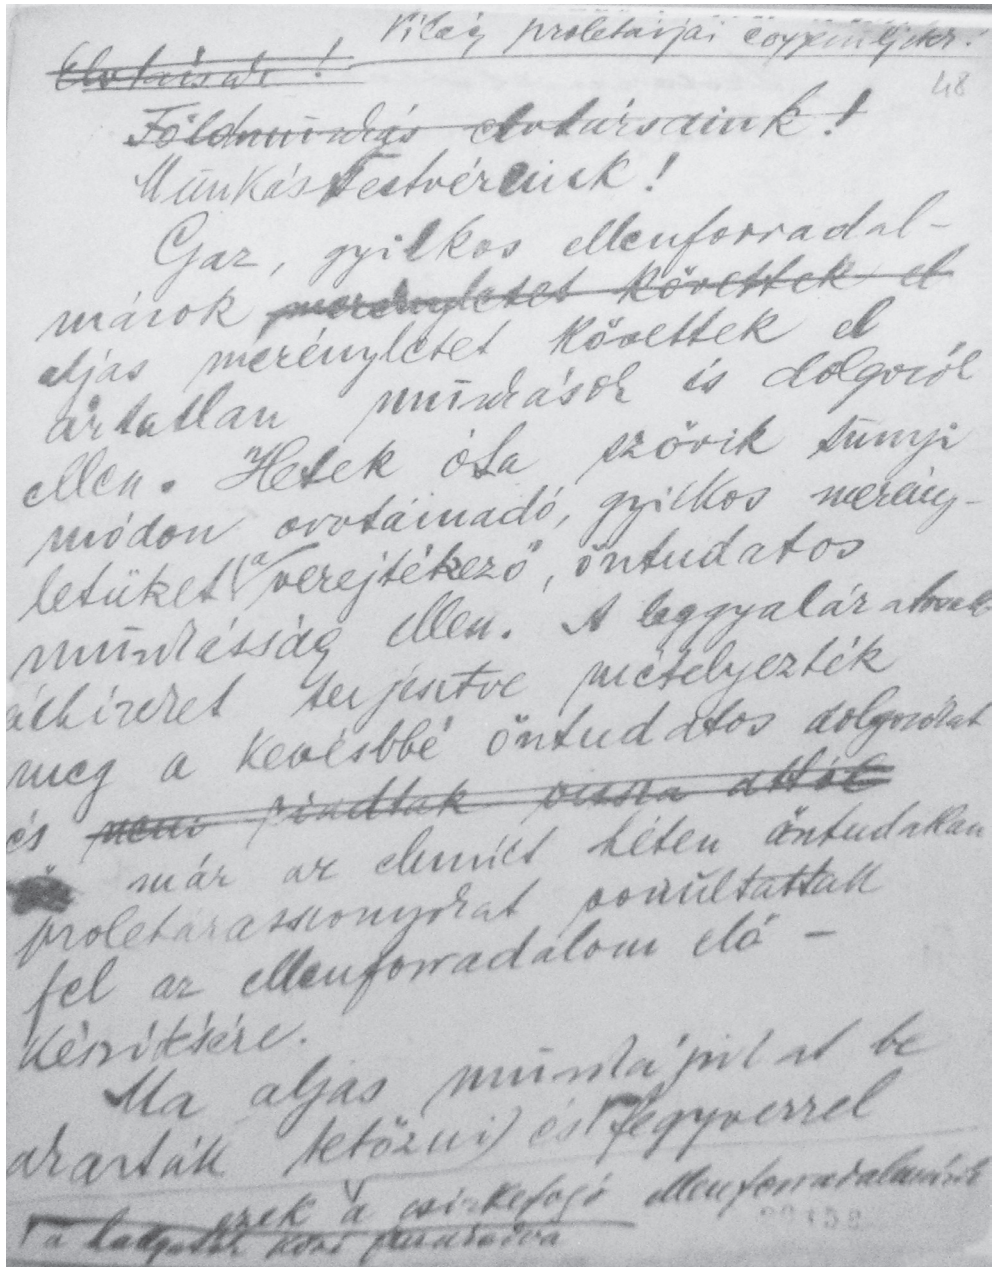 Világ proletárjai egyesüljetek!
48
Elvtársak!
Földmunkás elvtársaink!
Munkás Testvéreink!
Gaz, gyilkos ellenforradal-
márok merényletet követtek el
aljas merényletet követtek el
ártatlan munkások és dolgozók
ellen. Hetek óta szövik sunyi
módon orvtámadó, gyilkos merény-
letüket a verejtékező, öntudatos
munkásság ellen. A leggyalázatosabb
álhíreket terjesztve mételyezték
meg a kevésbbé öntudatos dolgozókat
és nem riadtak vissza attól
már az elmúlt héten öntudatlan
proletárasszonyokat vonultattak
fel az ellenforradalom elő-
készítésére.
Ma aljas munkájukat be
akarták tetőzni és fegyverrel
ezek a csirkefogó ellenforradalmárok
a közé furakodva